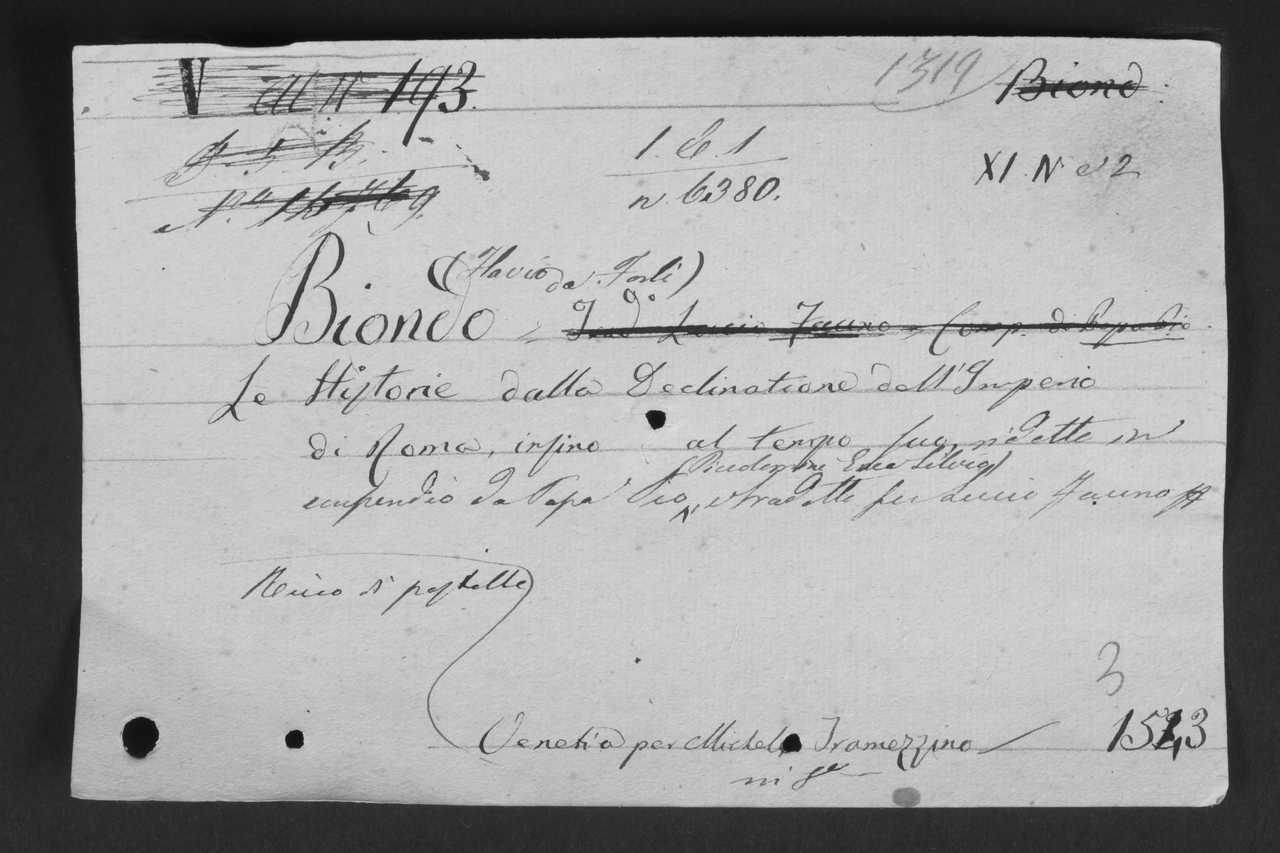 V 193.
1319
Biond
1. E. 1
n. 6380.
XI. N 2
N.o 16769.
(Flavio da Forlì)
Biondo Trad.o Lucio Fauno Comp. di Papa Pio
Le Historie dalla Declinatione dell'Imperio
di Roma, insino al tempo suo, ridotte in
(Piccolomini Enea Silvio)
compendio da Papa Pio, e tradotte per Lucio Fauno
Ricco di postille
3
Venetia per Michele Tramezzino 1543
in 8o